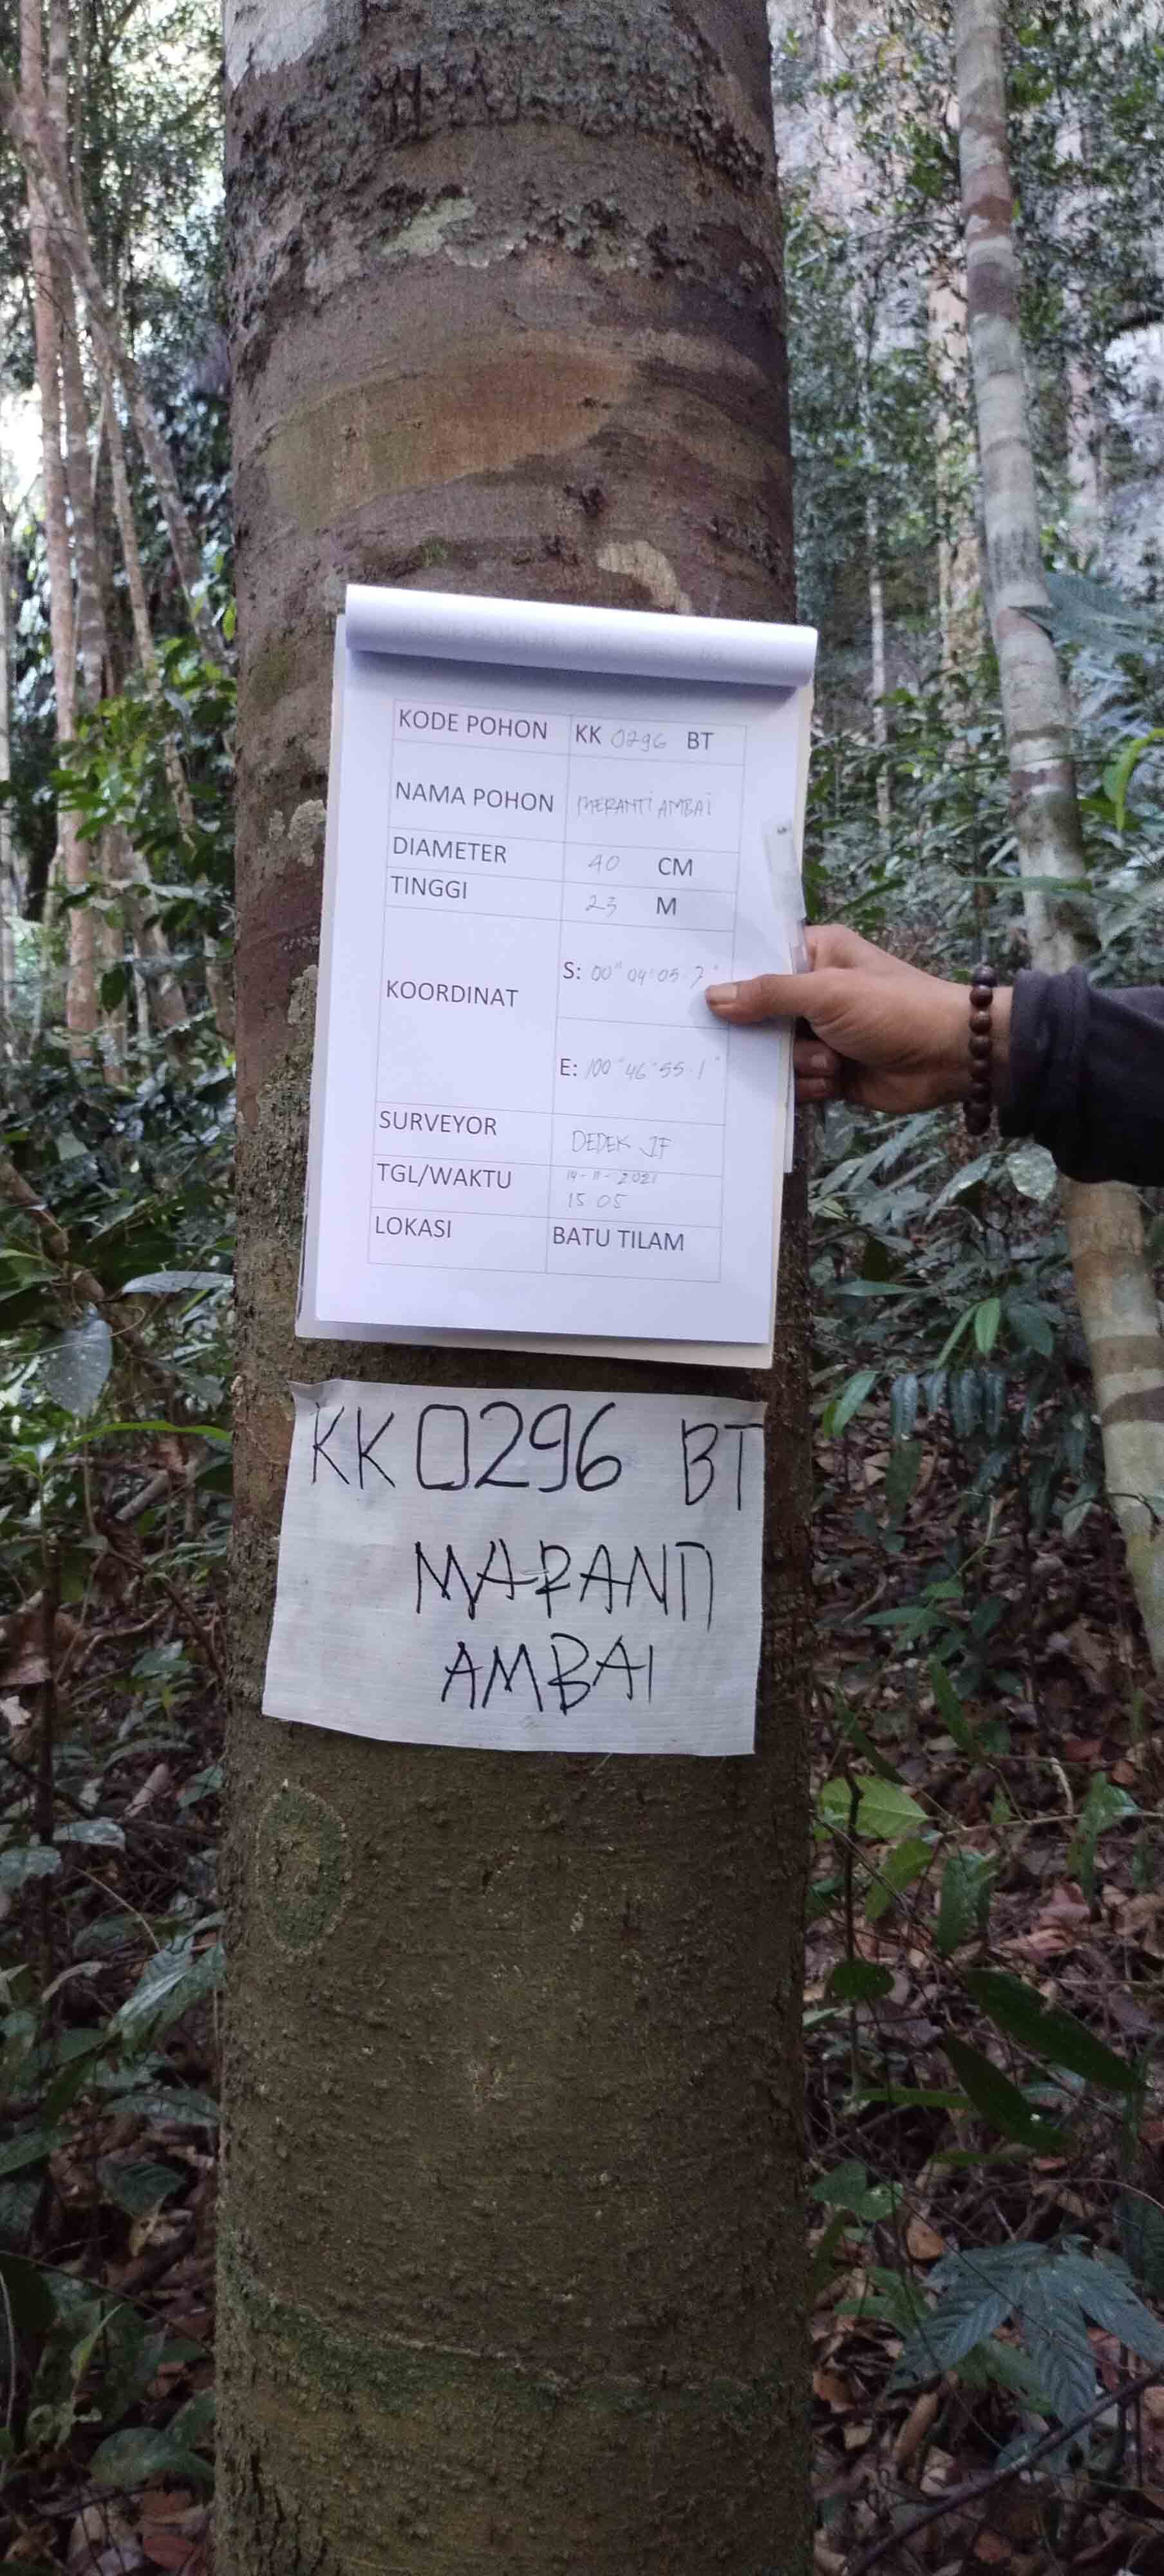 KODE POHON KK 0296 BT
NAMA POHON MERANTI AMBAI
DIAMETER 40 CM
TINGGI 23 M
KOORDINAT
S: 00° 04' 05.7"
E: 100° 46' 55.1"
SURVEYOR DEDEK JF
TGL/WAKTU 14-11-2021
15 05
LOKASI BATU TILAM
KK0296 BT
MARANTI
AMBAI